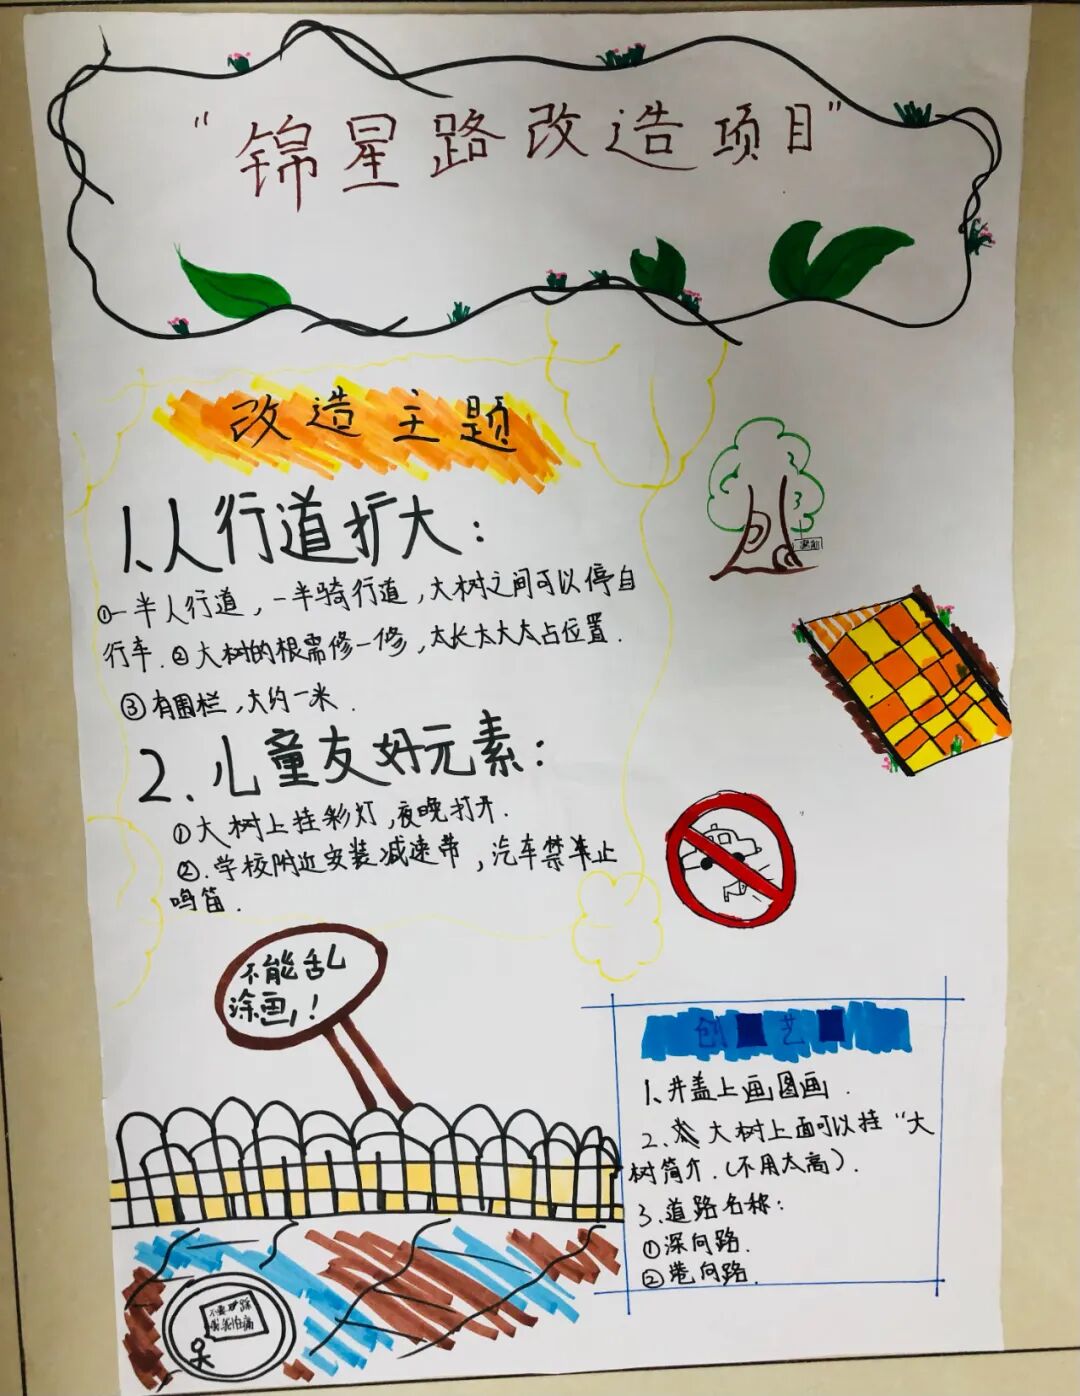 “锦星路改造项目”
改造主题
1.人行道扩大：
①一半人行道，一半骑行道，大树之间可以停自
行车.②大树的根需修一修，太长太大太占位置.
③有围栏，大约一米.
2.儿童友好元素：
①大树上挂彩灯，夜晚打开.
②.学校附近安装减速带，汽车禁止
鸣笛.
不能乱
涂画！
创 艺
1、井盖上画图画.
2.大树上面可以挂“大
树简介.（不用太高）.
3.道路名称：
①深向路.
②港向路.